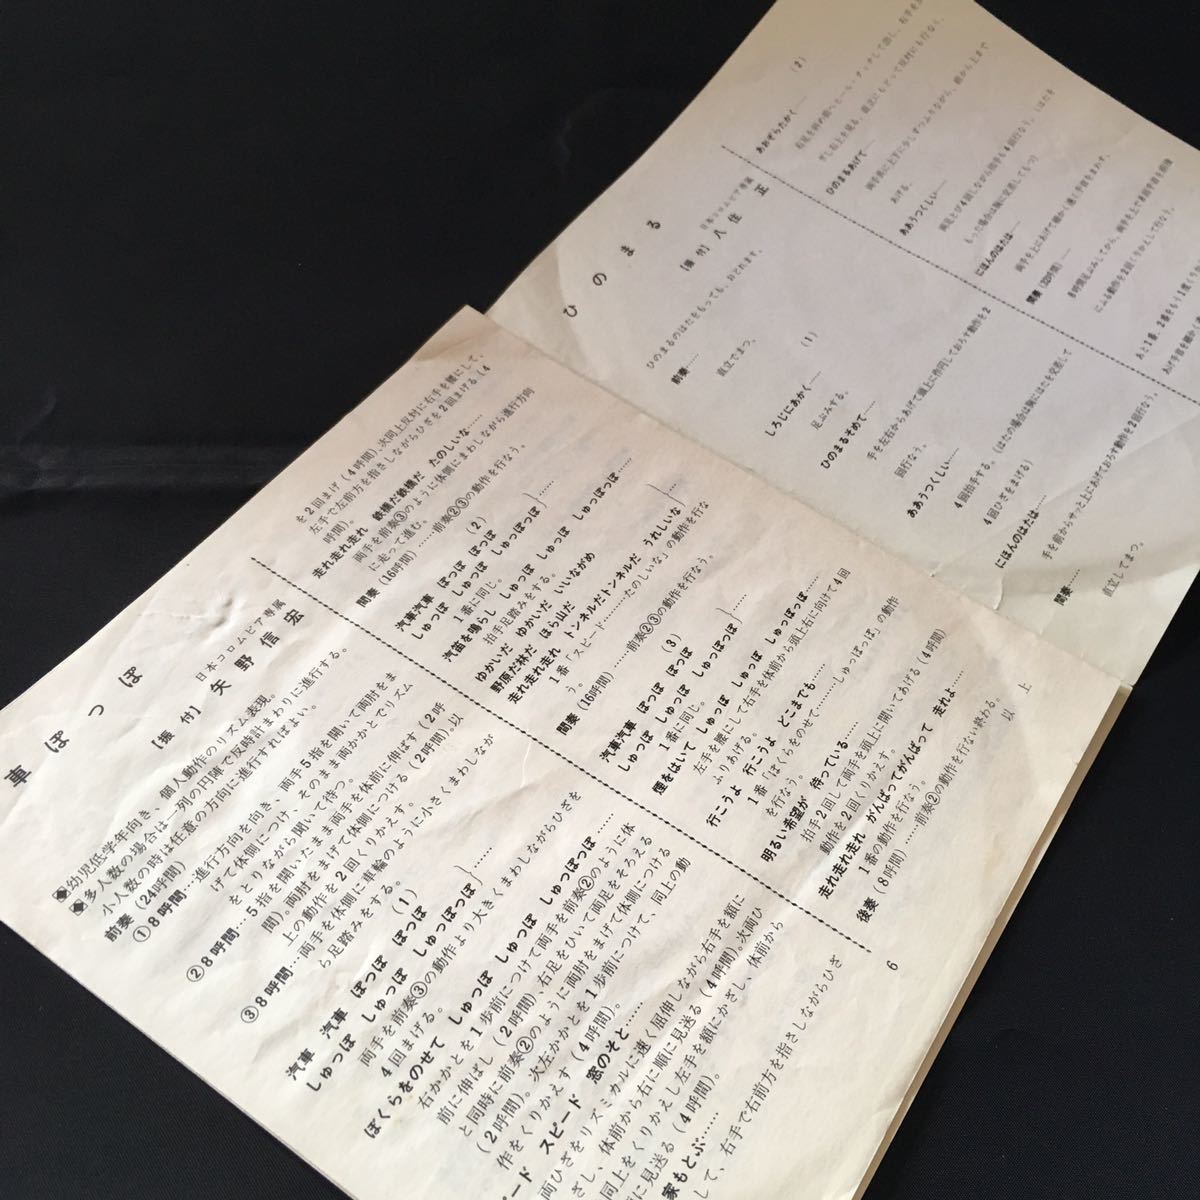 車ぽっぽ
日本コロムビア専属
【振付】矢野信宏
◆幼児低学年向き、個人動作のリズム表現。
◆多人数の場合は一列の円陣で反時計まわりに進行する。
小人数の時は任意の方向に進行すればよい。
前奏（24呼間）
①8呼間…進行方向を向き、両手5指を開いて両肘をま
げて体側につけ、そのまま両かかとでリズム
をとりながら聞いて待つ。
②8呼間…5指を開いたまま両手を体前に伸ばす（2呼
間）。両肘をまげて体側につける（2呼間）。以
上の動作を2回くりかえす。
③8呼間…両手を体側に車輪のように小さくまわしなが
ら足踏みをする。
（1）
汽車 汽車 ぽっぽ ぽっぽ
しゅっぽ しゅっぽ しゅっぽっぽ｝……
両手を前奏③の動作より大きくまわしながらひざを
4回まげる。
ぼくらをのせて しゅっぽ しゅっぽ しゅっぽっぽ
右かかとを1歩前につけて両手を前奏②のように体
前に伸ばし（2呼間）、右足をひいて両足をそろえる
と同時に前奏②のように両肘をまげて体側につける
（2呼間）。次左かかとを1歩前につけて、同上の動
作をくりかえす（4呼間）。
ピード スピード 窓のそと……
両ひざをリズミカルに速く屈伸しながら右手を額に
かざし、体前から右に順に見送る（4呼間）。次両ひ
同上をくりかえし左手を額にかざし、体前から
に見送る（4呼間）。
家もとぶ……
して、右手で右前方を指さしながらひざ
を2回まげ（4呼間）、次同上反対に右手を腰にして、
左手で左前方を指さしながらひざを2回まげる（4
呼間）。
走れ走れ走れ 鉄橋だ鉄橋だ たのしいな……
両手を前奏③のように体側にまわしながら進行方向
に走って進む。
間奏（16呼間）……前奏②③の動作を行なう。
（2）
汽車汽車 ぽっぽ ぽっぽ
しゅっぽ しゅっぽ しゅっぽっぽ｝……
1番に同じ。
汽笛を鳴らし しゅっぽ しゅっぽ しゅっぽっぽ……
拍手足踏みをする。
ゆかいだ ゆかいだ いいながめ
野原だ林だ ほら山だ
走れ走れ走れ トンネルだトンネルだ うれしいな
1番「スピード……たのしいな」の動作を行な
う。
間奏（16呼間）……前奏②③の動作を行なう。
（3）
汽車汽車 ぽっぽ ぽっぽ
しゅっぽ しゅっぽ しゅっぽっぽ｝……
1番に同じ。
煙をはいて しゅっぽ しゅっぽ しゅっぽっぽ……
左手を腰にして右手を体前から頭上右に向けて4回
ふりあげる。
行こうよ 行こうよ どこまでも……
1番「ぼくらをのせて……しゅっぽっぽ」の動作
を行なう。
明るい希望が 待っている……
拍手2回して両手を頭上に開いてあげる（4呼間）
動作を2回くりかえす。
走れ走れ走れ がんばってがんばって 走れよ……
1番の動作を行なう。
後奏（8呼間）……前奏②の動作を行ない終わる。
以上
6
ひのまる
日本コロムビア専属
【振付】八住 正
ひのまるのはたをもっても、おどれます。
前奏……
直立でまつ。
（1）
しろじにあかく……
足ぶみする。
ひのまるそめて……
手を左右からあげて頭上に作円しておろす動作を2
回行なう。
ああうつくしい……
4回拍手する。（はたの場合は胸にはたを交差して
4回ひざをまげる）
にほんのはたは……
手を前からサッと上にあげておろす動作を2回行なう。
間奏……
直立してまつ。
（2）
あおぞらたかく……
ひのまるあげて……
あげる。
ああうつくしい……
もった場合は胸に交差してもつ）
にほんのはたは……
間奏（32呼間）